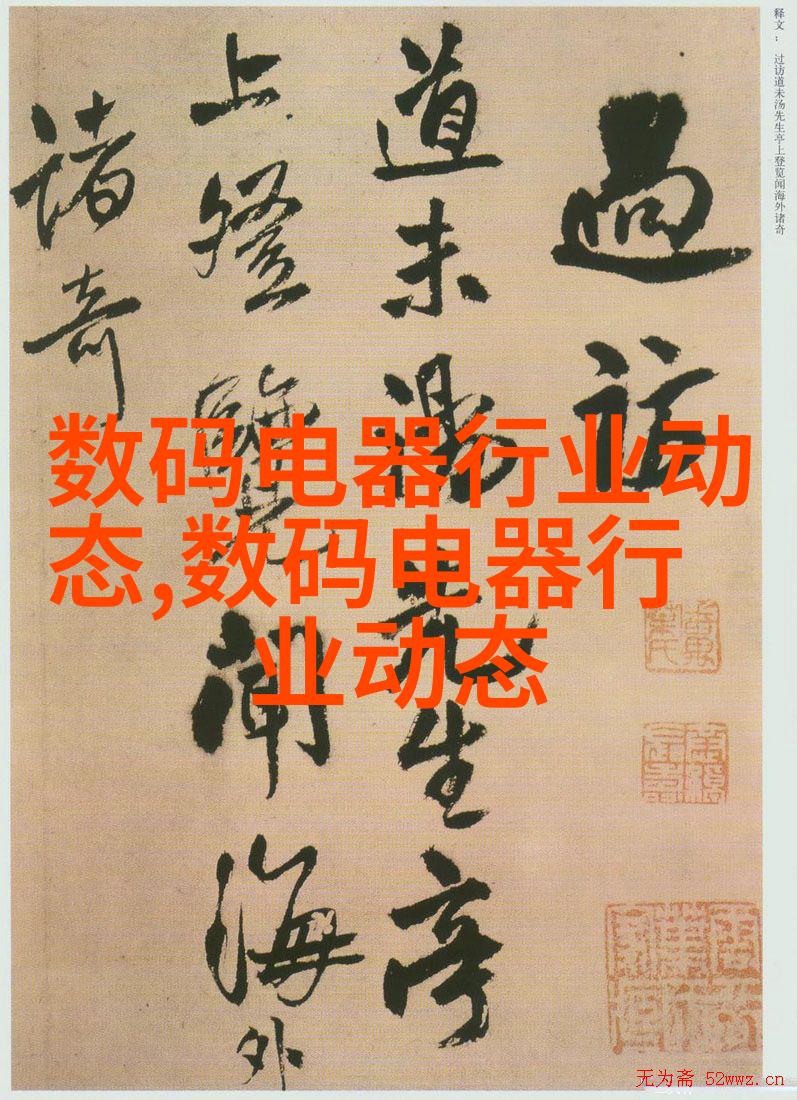 释文： 过访道未汤先生亭上登览闻海外诸奇
過訪
道未湯先生亭
上登覽聞海外
諸奇
数码电器行业动
态,数码电器行
业动态
无为斋 52wwz.cn